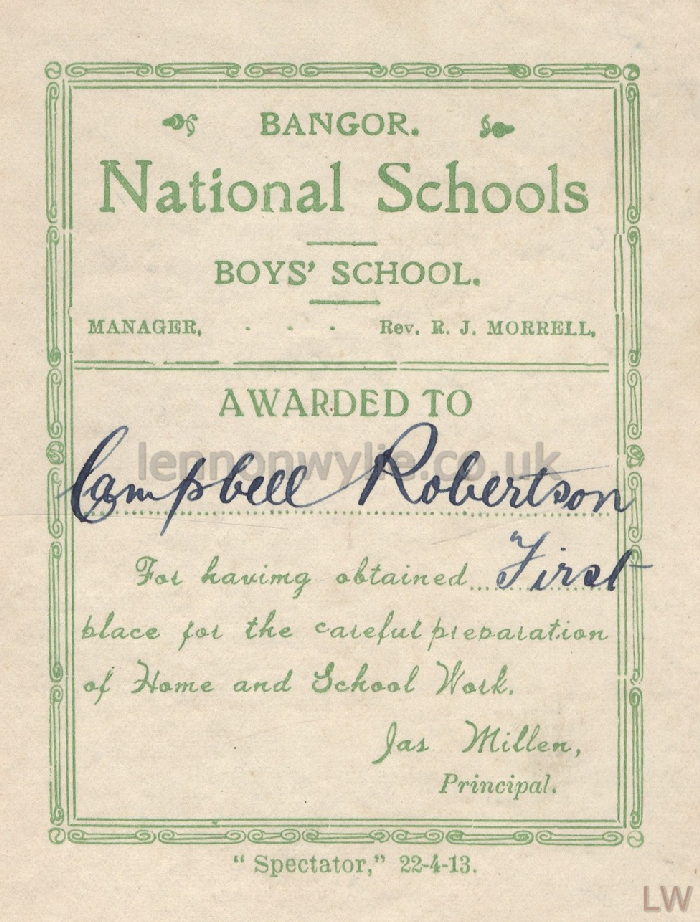 BANGOR.
National Schools
BOYS' SCHOOL.
MANAGER, - - - Rev. R. J. MORRELL.
AWARDED TO
lennonwylie.co.uk
Campbell Robertson
For having obtained First
place for the careful preparation
of Home and School Work.
Jas Millen,
Principal.
"Spectator," 22-4-13.
LW